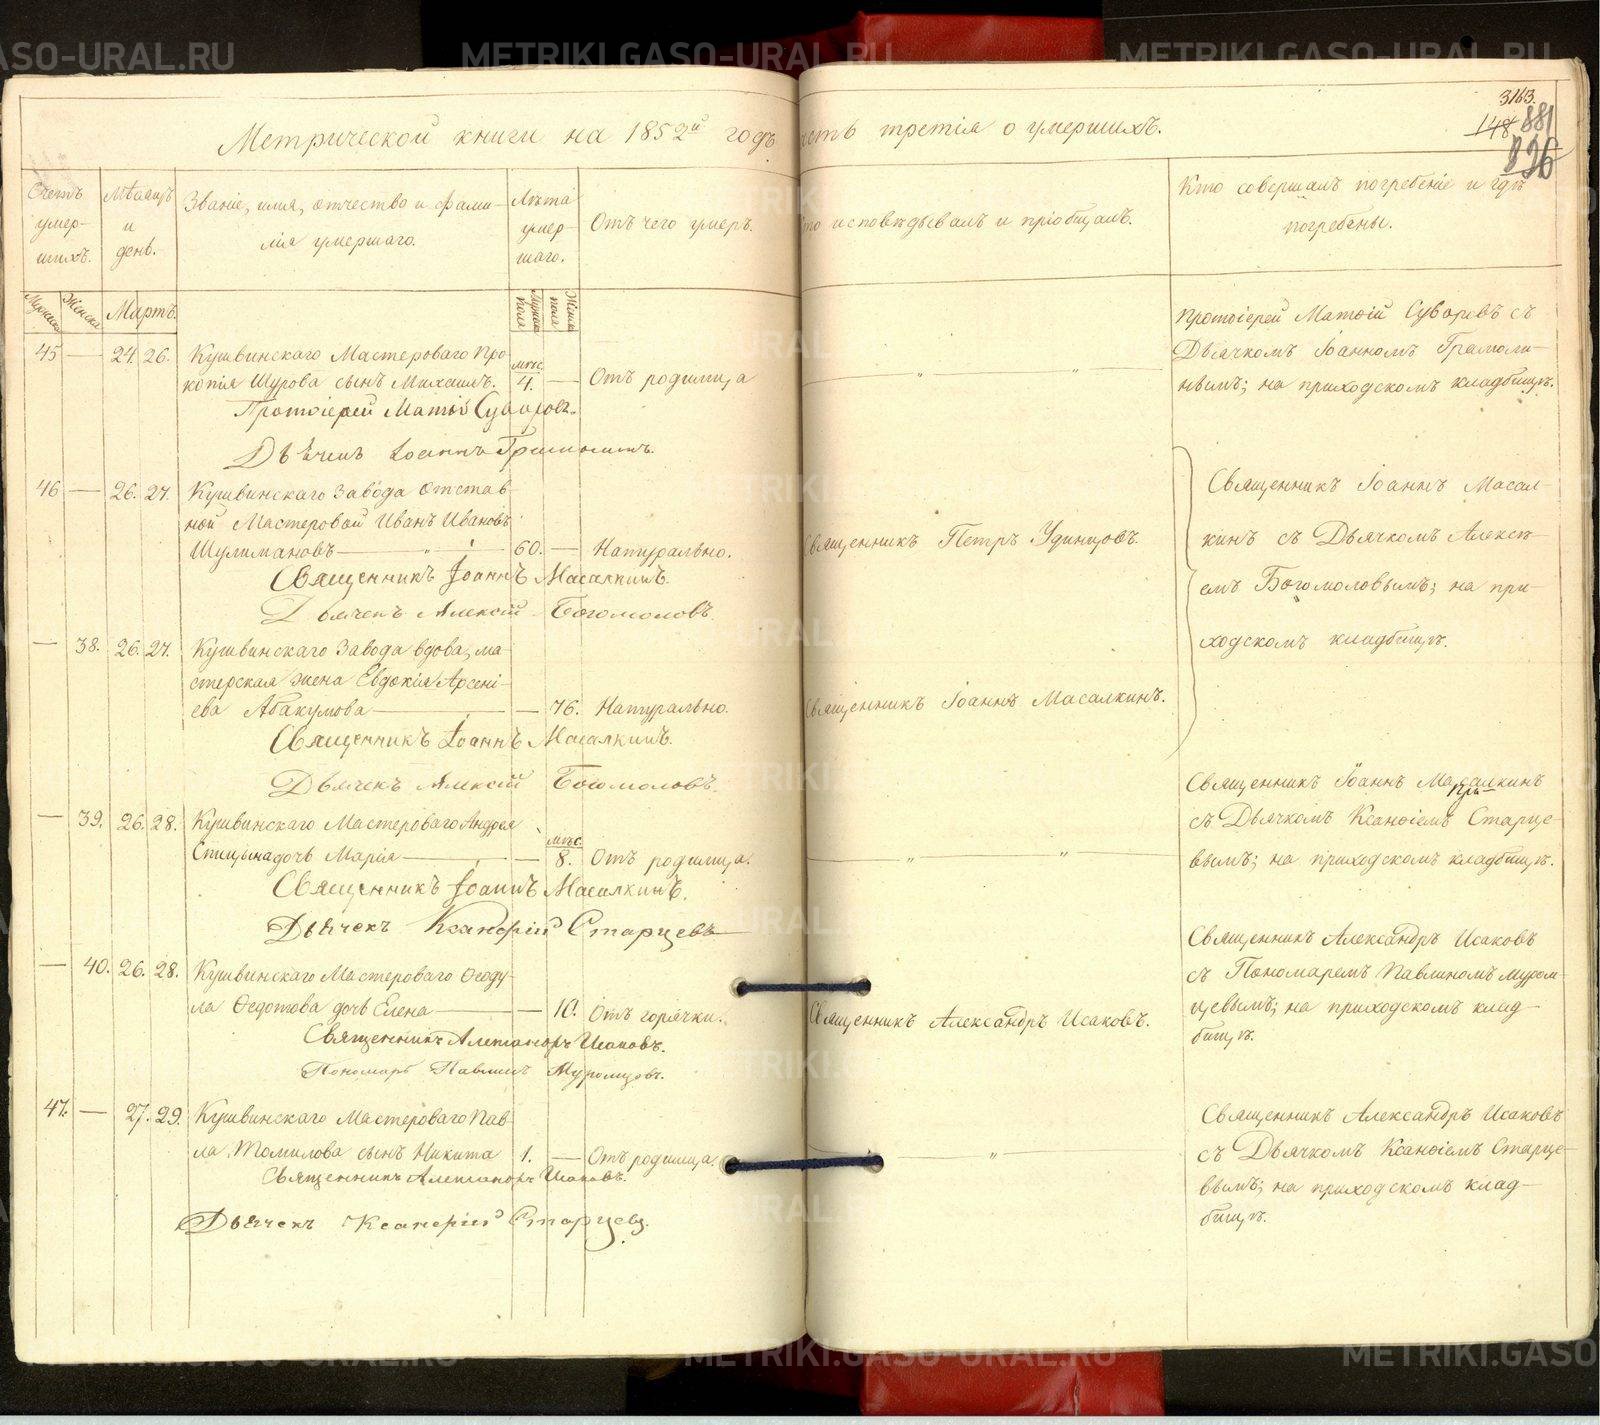 METRIKI.GASO-URAL.RU
3163.
148
881
Метрической книги на 1852й годъ часть третія о умершихъ.
Счетъ умер-
шихъ.
Мѣсяцъ
и
день.
Званіе, имя, отчество и фами-
лія умершаго.
Лѣта
умер-
шаго.
Отъ чего умеръ.
Кто исповѣдывалъ и пріобщалъ.
Кто совершалъ погребеніе и гдѣ
погребены.
Мартъ.
45 — 24. 26. Кушвинскаго Мастероваго Про-
копія Щурова сынъ Михаилъ. мѣс. 4. — Отъ родимца
Протоіерей Матѳій Суворовъ.
Дьячекъ Іоаннъ Грамолинъ.
Протоіерей Матѳій Суворовъ съ
Дьячкомъ Іоанномъ Грамоли-
нымъ; на приходскомъ кладбищѣ.
46 — 26. 27. Кушвинскаго Завода отстав-
ной Мастеровой Иванъ Ивановъ
Шулимановъ — 60. — Натурально.
Священникъ Іоаннъ Масалкинъ.
Дьячекъ Алексій Богомоловъ.
Священникъ Петръ Удинцовъ.
Священникъ Іоаннъ Масал-
кинъ съ Дьячкомъ Алексѣ-
емъ Богомоловымъ; на при-
ходскомъ кладбищѣ.
— 38. 26. 27. Кушвинскаго Завода вдова, ма-
стерская жена Евдокія Арсені-
ева Абакумова — 76. Натурально.
Священникъ Іоаннъ Масалкинъ.
Дьячекъ Алексій Богомоловъ.
Священникъ Іоаннъ Масалкинъ.
— 39. 26. 28. Кушвинскаго Мастероваго Андрея
Спицына дочь Марія — мѣс. 8. Отъ родимца.
Священникъ Іоаннъ Масалкинъ.
Дьячекъ Ксанѳій Старцевъ
Священникъ Іоаннъ Масалкинъ
съ Дьячкомъ Ксанѳіемъ Старце-
вымъ; на приходскомъ кладбищѣ.
— 40. 26. 28. Кушвинскаго Мастероваго Ѳеоду-
ла Ѳедотова дочь Елена — 10. Отъ горячки.
Священникъ Александръ Исаковъ.
Пономарь Павлинъ Муромцовъ.
Священникъ Александръ Исаковъ.
Священникъ Александръ Исаковъ
съ Пономаремъ Павлиномъ Муром-
цевымъ; на приходскомъ клад-
бищѣ.
47. — 27. 29. Кушвинскаго Мастероваго Пав-
ла Томилова сынъ Никита 1. — Отъ родимца.
Священникъ Александръ Исаковъ.
Дьячекъ Ксанѳій Старцевъ.
Священникъ Александръ Исаковъ
съ Дьячкомъ Ксанѳіемъ Старце-
вымъ; на приходскомъ клад-
бищѣ.